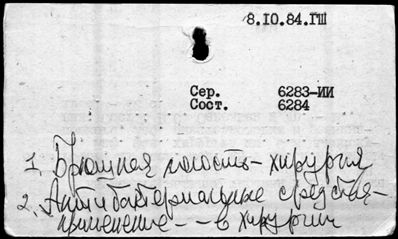 8.10.84.ГШ
Сер. 6283-ИИ
Сост. 6284
1. Брюшная полость - хирургия
2. Антибактериальные средства -
применение - - в хирургии